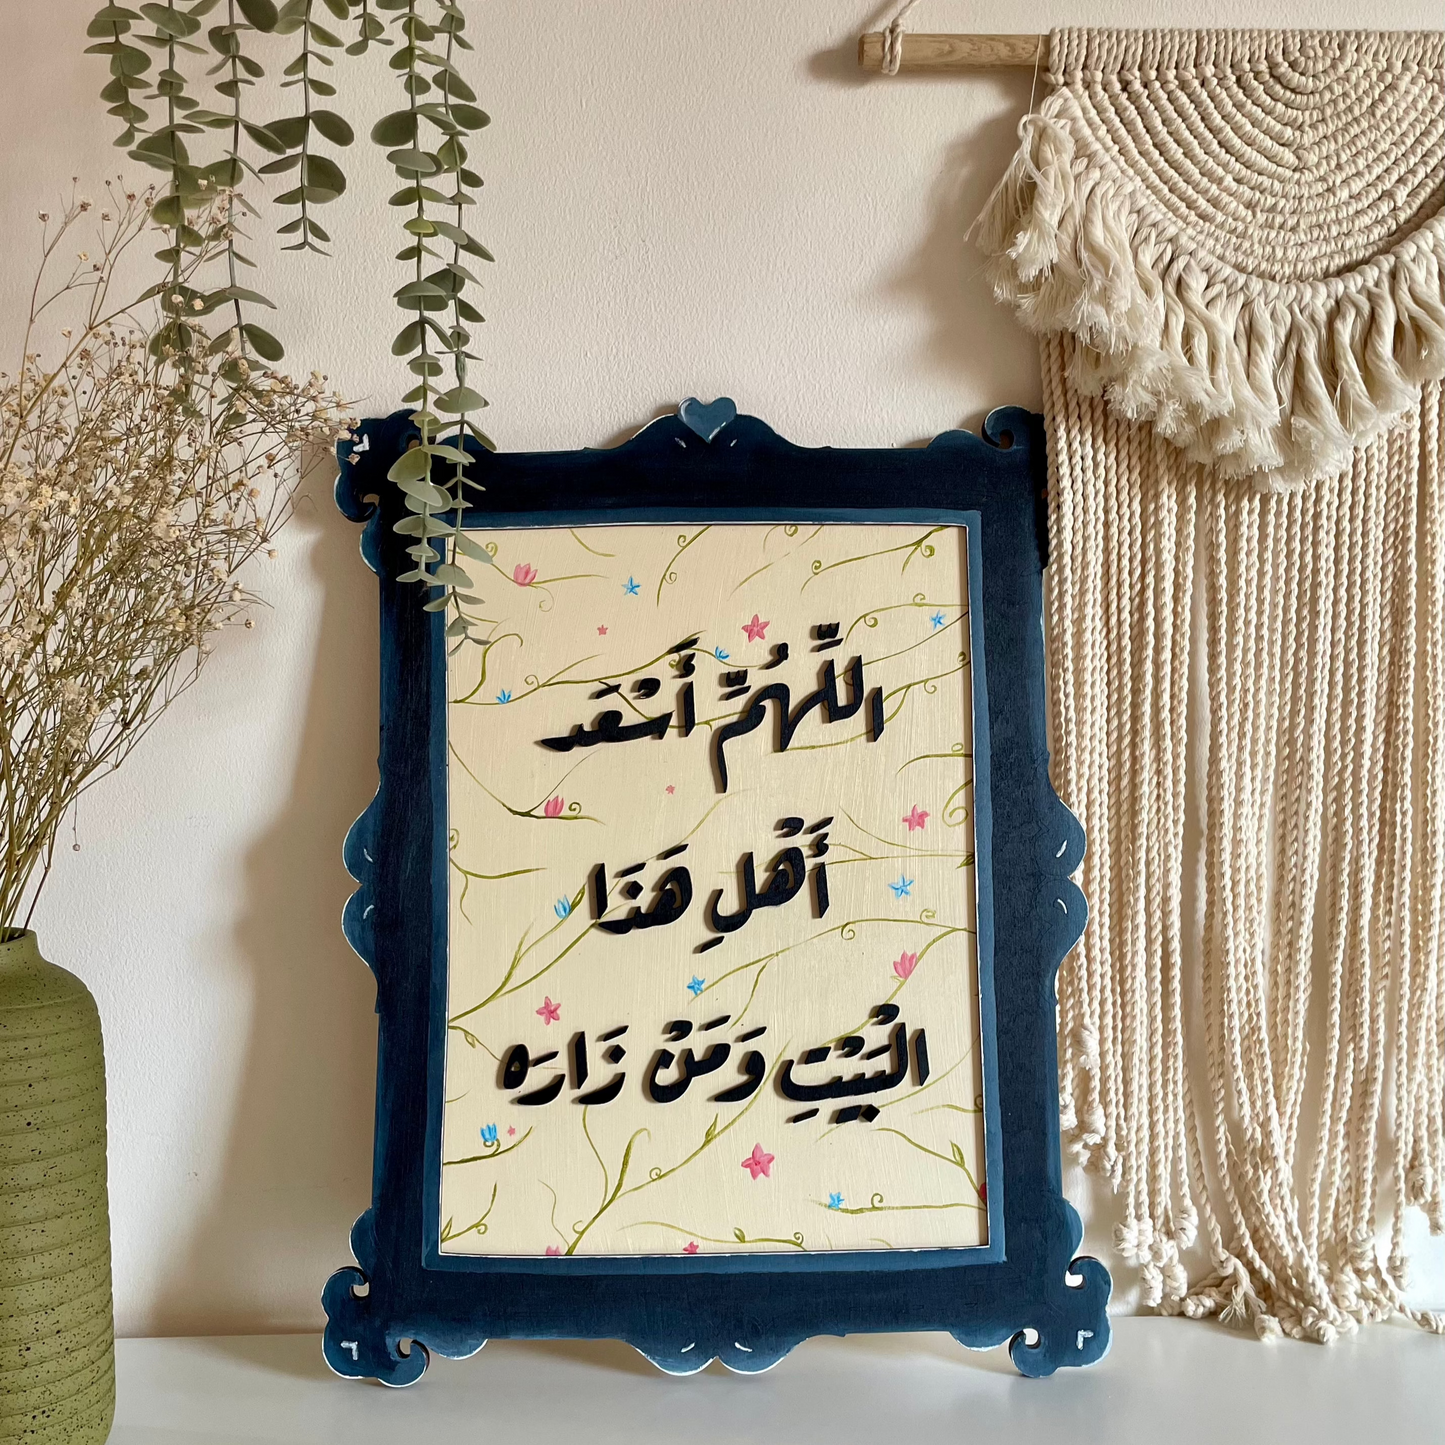 اللَّهُمَّ أَسْعَد
أَهْلِ هَذَا
الْبَيْتِ وَمَنْ زَارَه